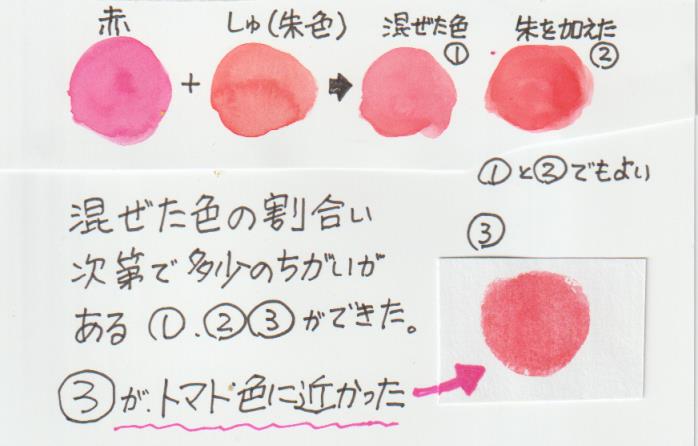 赤
しゅ(朱色)
混ぜた色
①
朱を加えた
②
+
①と②でもよい
混ぜた色の割合い
次第で多少のちがいが
ある ①、②③ができた。
③
③が、トマト色に近かった